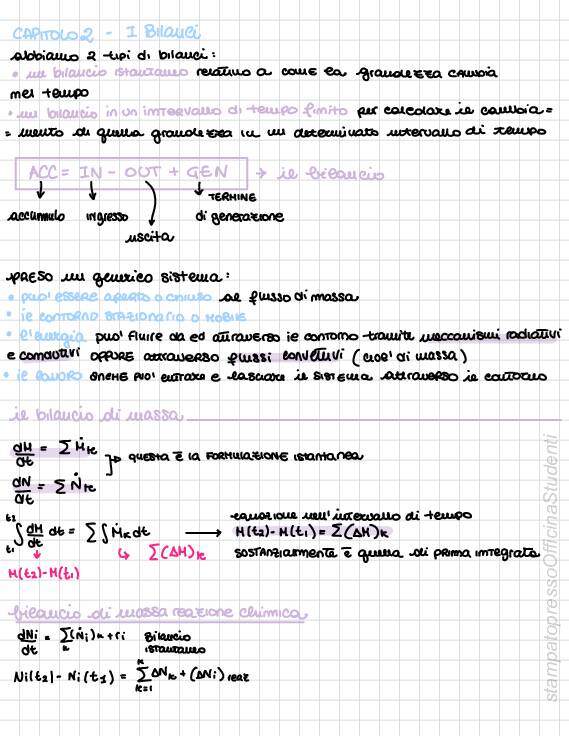 CAPITOLO 2 - I Bilanci
abbiamo 2 tipi di bilanci:
• un bilancio istantaneo relativo a come la grandezza cambia
nel tempo
• un bilancio in un intervallo di tempo finito per calcolare il cambia=
= mento di quella grandezza in un determinato intervallo di tempo
ACC = IN - OUT + GEN → il bilancio
accumulo ingresso TERMINE
di generazione
uscita
PRESO un generico sistema:
• può essere aperto o chiuso al flusso di massa
• il contorno stazionario o mobile
• l'energia può fluire da ed attraverso il contorno tramite meccanismi radiativi
e conduttivi oppure attraverso flussi convettivi (cioè di massa)
• il lavoro anche può entrare e lasciare il sistema attraverso il contorno
il bilancio di massa
dM/dt = ∑ Ṁk
questa è la formulazione istantanea
dN/dt = ∑ Ṅk
equazione nell'intervallo di tempo
∫t1t2 dM/dt dt = ∑ ∫ Ṁk dt → M(t2) - M(t1) = ∑(ΔM)k
↳ ∑(ΔM)k sostanzialmente è quella di prima integrata
M(t2) - M(t1)
bilancio di massa reazione chimica
dNi/dt = ∑k (Ṅi)k + ri Bilancio
istantaneo
Ni(t2) - Ni(t1) = ∑k=1K ΔNk + (ΔNi) reaz
stampatopressoOfficinaStudenti